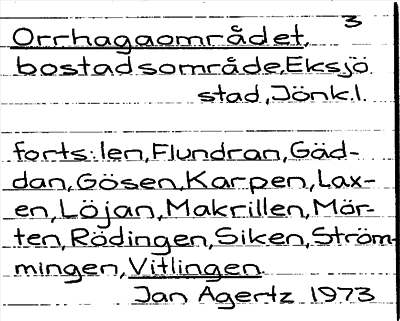 3
Orrhagaområdet,
bostadsområde, Eksjö
stad, Jönk.l.
forts.: len, Flundran, Gäd-
dan, Gösen, Karpen, Lax-
en, Löjan, Makrillen, Mör-
ten, Rödingen, Siken, Ström-
mingen, Vitlingen.
Jan Agertz 1973